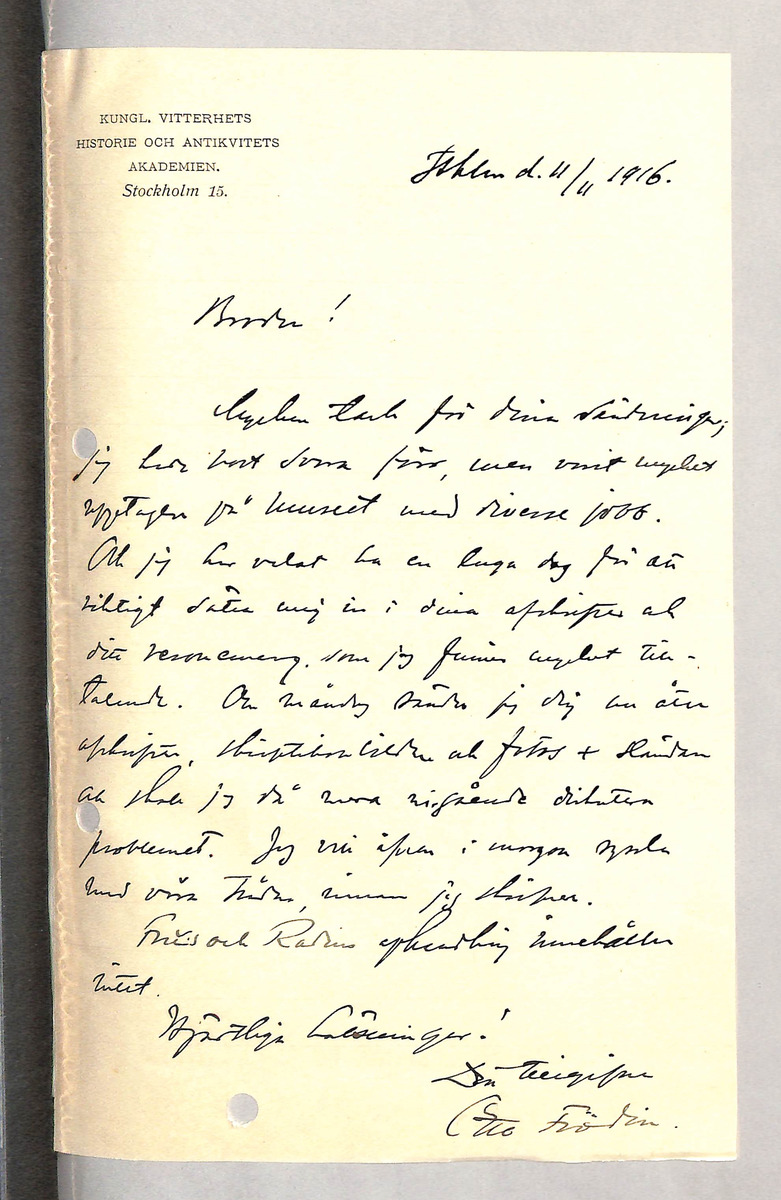 KUNGL. VITTERHETS
HISTORIE OCH ANTIKVITETS
AKADEMIEN.
Stockholm 15.
Sthlm d. 11/11 1916.
Broder!
Mycken tack för dina sändningar;
jag hade bort svara förr, men varit mycket
upptagen på museet med diverse jobb.
Och jag har velat ha en lugn dag för att
riktigt sätta mig in i dina afskrifter och
ditt resonemang, som jag finner mycket till-
talande. Om måndag sänder jag dig nu åter
afskrifter, och fotos +
och skall jag då mera ingående diskutera
problemet. Jag vill äfven i morgon syssla
med våra innan jag skrifver.
Friis och Radius afhandling innehåller
intet.
Hjärtliga hälsningar!
Din tillgifne
Otto Frödin.